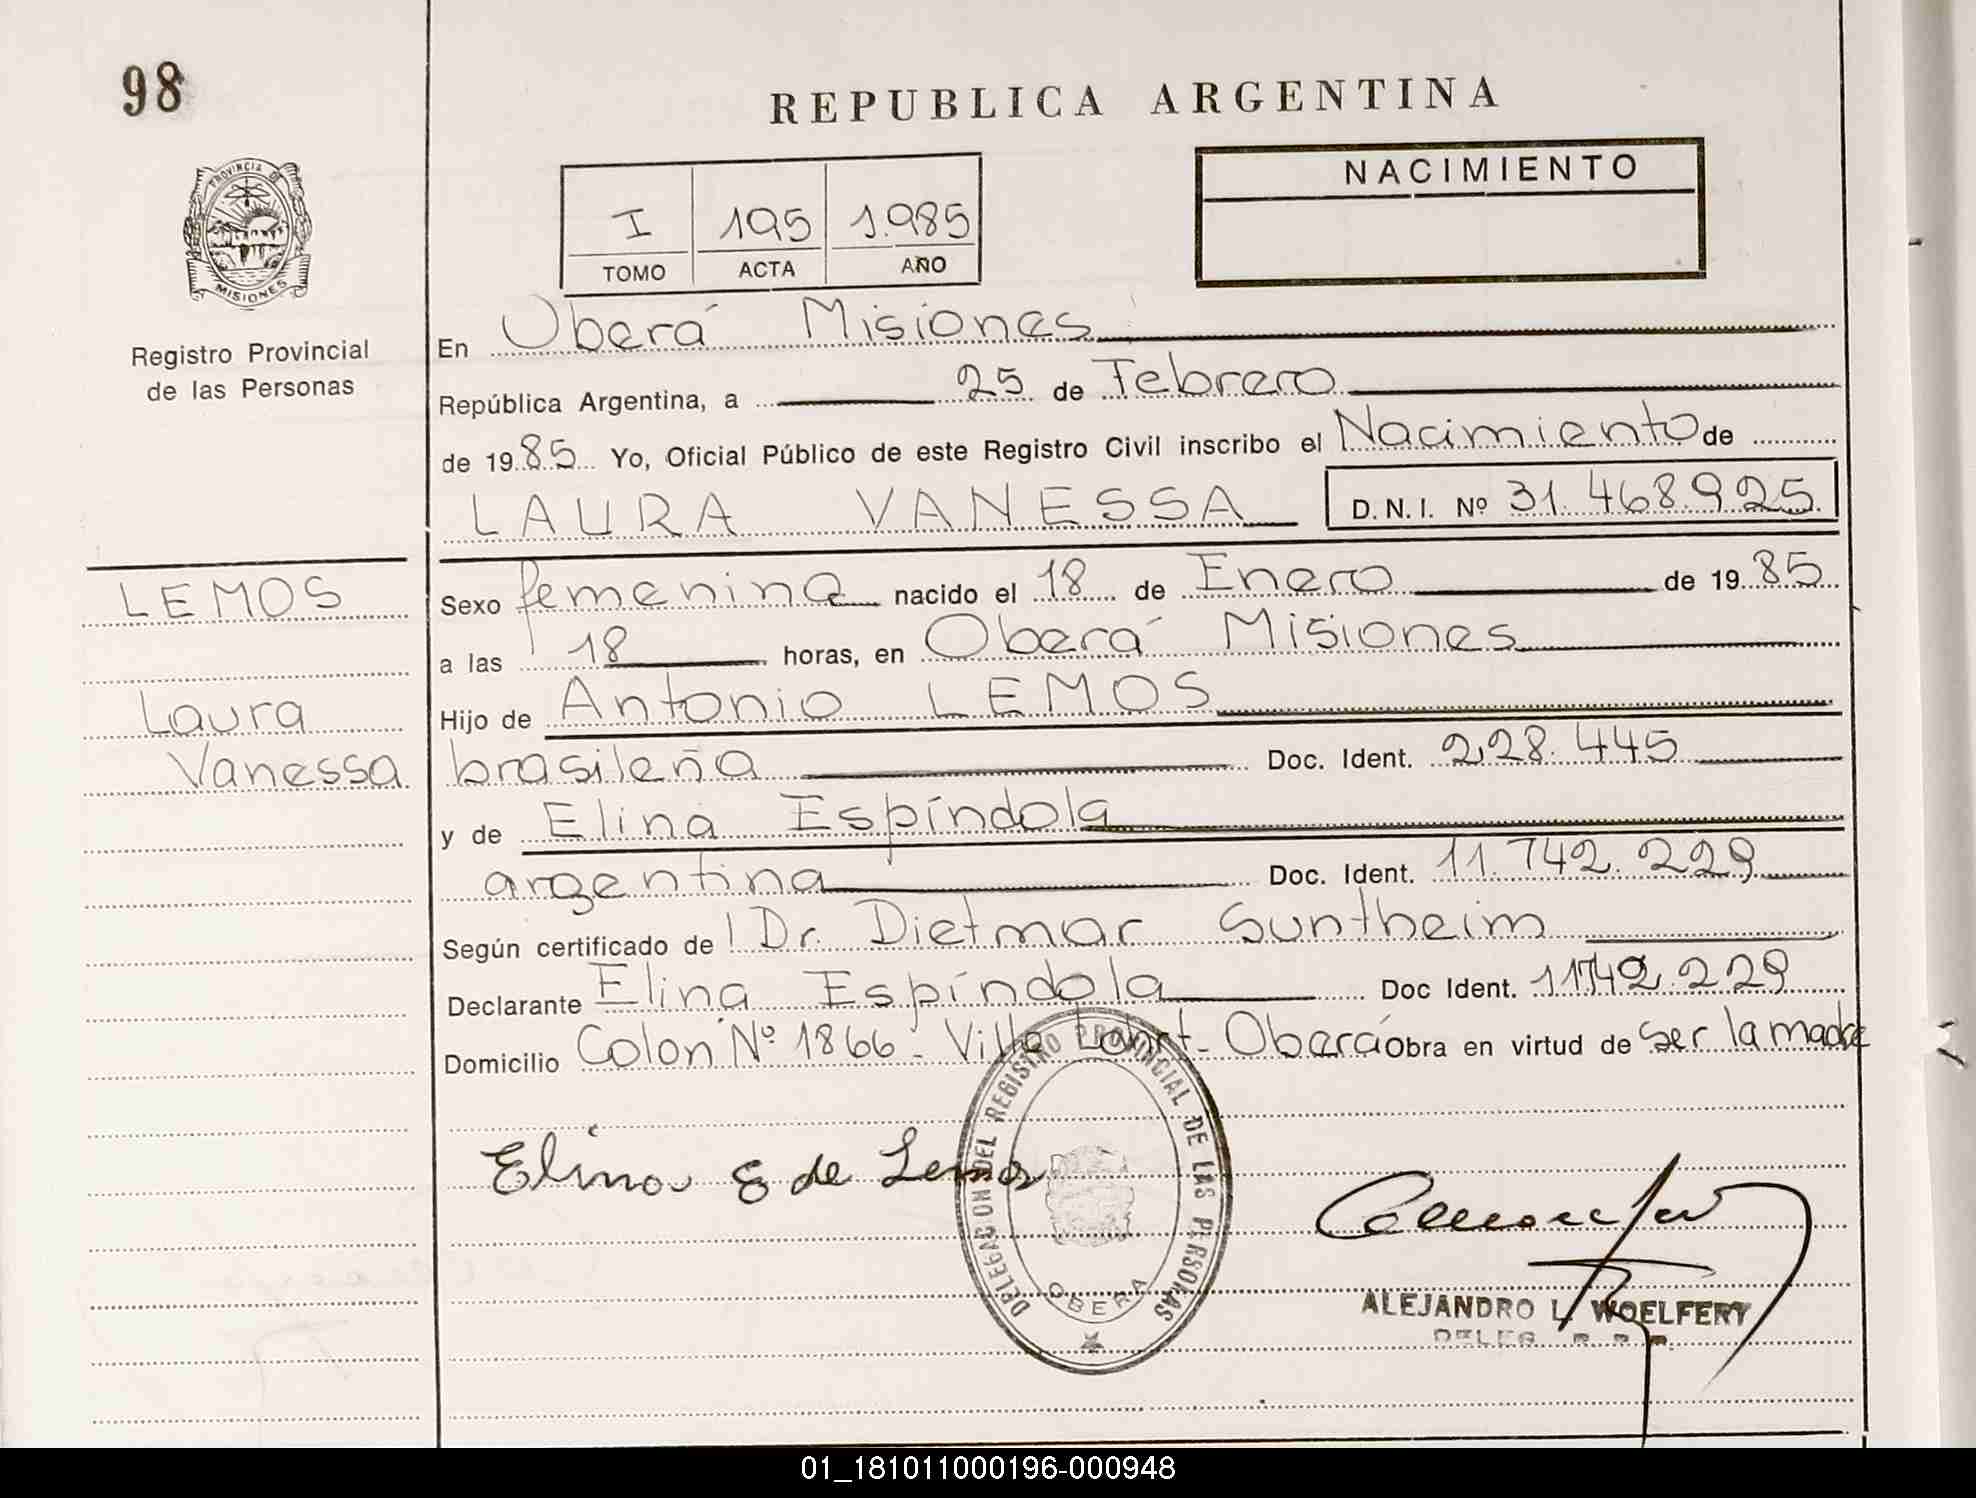 98
REPUBLICA ARGENTINA
NACIMIENTO
I 195 1.985
TOMO ACTA AÑO
PROVINCIA DE
MISIONES
Registro Provincial
de las Personas
En Oberá Misiones
República Argentina, a 25 de Febrero
de 1985 Yo, Oficial Público de este Registro Civil inscribo el Nacimiento de
LAURA VANESSA D.N.I. Nº 31.468.925
LEMOS
Laura
Vanessa
Sexo femenina nacido el 18 de Enero de 1985
a las 18 horas, en Oberá Misiones
Hijo de Antonio LEMOS
brasileña Doc. Ident. 228.445
y de Elina Espíndola
argentina Doc. Ident. 11.742.229
Según certificado de Dr. Dietmar Suntheim
Declarante Elina Espíndola Doc Ident. 11742.229
Domicilio Colon Nº 1866 - Villa - Oberá Obra en virtud de ser la madre
Elina E de Lemos
DELEGACION DEL REGISTRO PROVINCIAL DE LAS PERSONAS
OBERA
ALEJANDRO L. WOELFERY
DELEG. R. P. P.
01_181011000196-000948